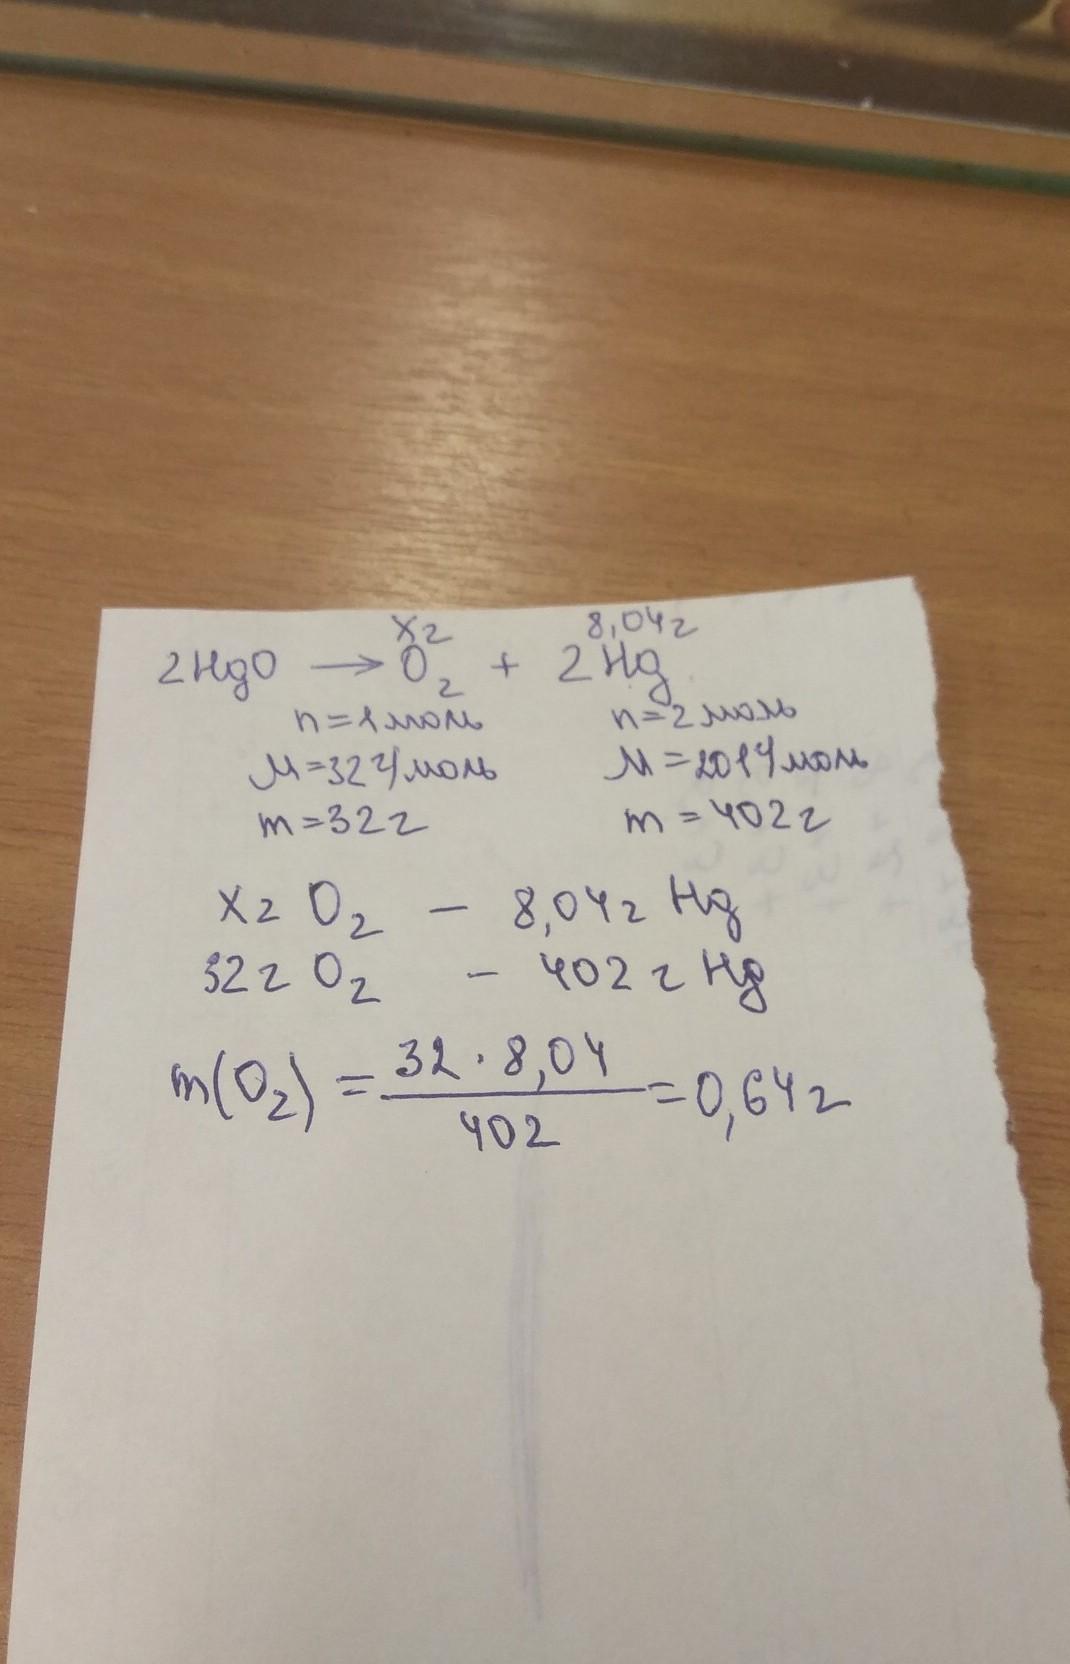 x г 8,04 г
2HgO → O₂ + 2Hg
n=1 моль n=2 моль
M=32 г/моль M=201 г/моль
m=32 г m=402 г
x г O₂ – 8,04 г Hg
32 г O₂ – 402 г Hg
m(O₂) = 32 · 8,04 / 402 = 0,64 г